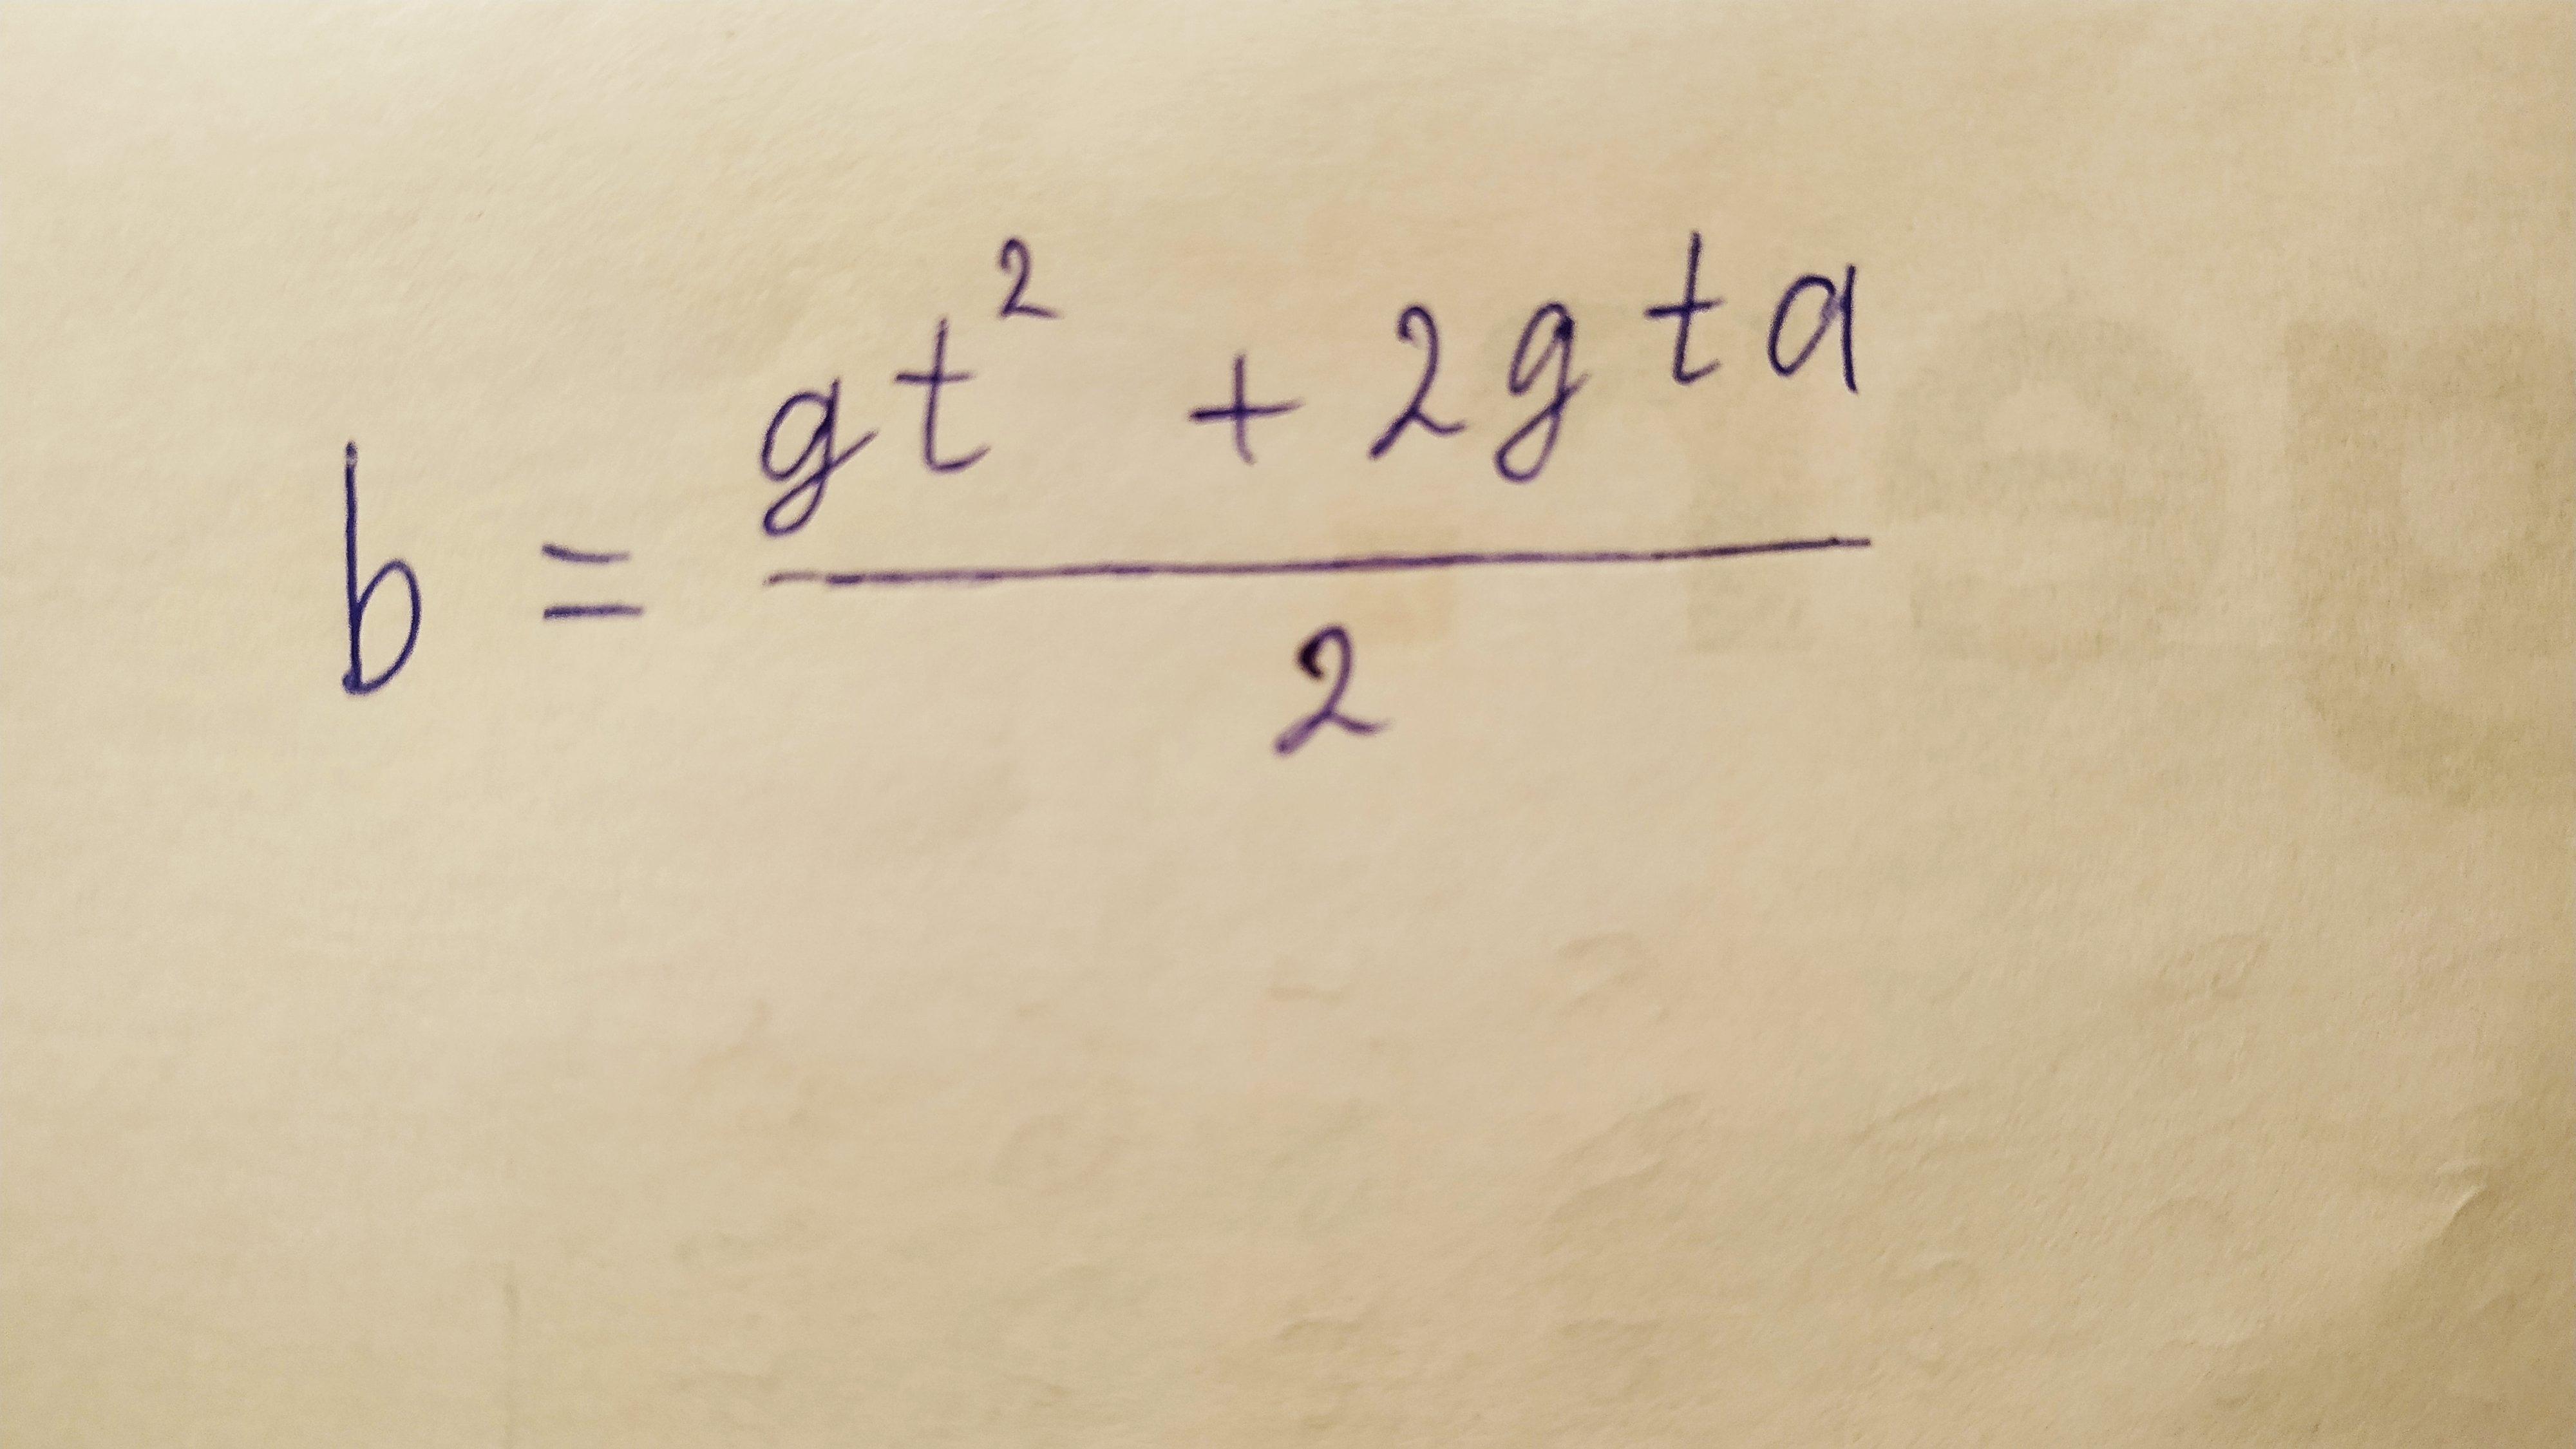 b = (gt² + 2gta) / 2